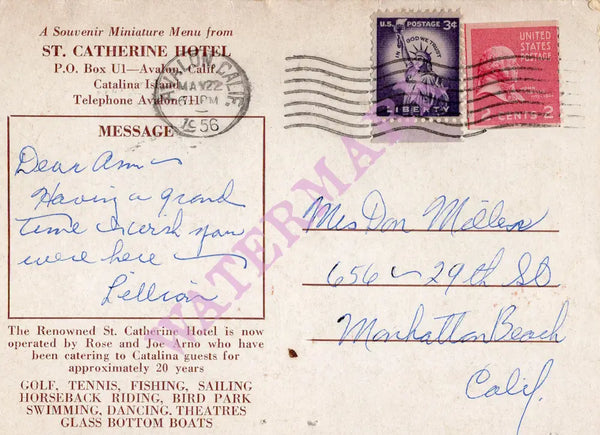 A Souvenir Miniature Menu from
ST. CATHERINE HOTEL
P.O. Box U1—Avalon, Calif.
Catalina Island
Telephone Avalon 711
AVALON, CALIF.
MAY 22
PM
1956
U.S. POSTAGE 3¢
IN GOD WE TRUST
LIBERTY
UNITED
STATES
POSTAGE
2 CENTS 2
MESSAGE
Dear Ann —
Having a grand
time & wish you
were here —
Lillian
Mrs Don Miller
656 — 29th St
Manhattan Beach
Calif.
The Renowned St. Catherine Hotel is now
operated by Rose and Joe Arno who have
been catering to Catalina guests for
approximately 20 years
GOLF, TENNIS, FISHING, SAILING
HORSEBACK RIDING, BIRD PARK
SWIMMING, DANCING, THEATRES
GLASS BOTTOM BOATS
WATERMARK